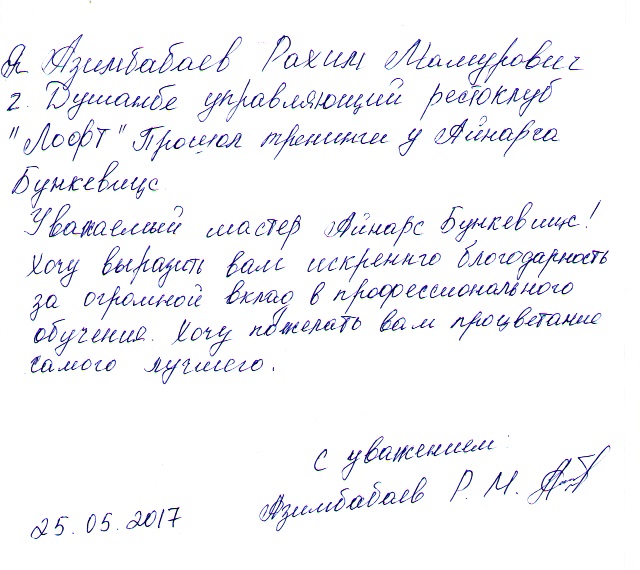 Я Азимбабаев Рахим Мамурович
г. Душанбе управляющий рестоклуб
"Лофт" Прошол тренинги у Айнарса
Бункевицс
Уважаемый мастер Айнарс Бункевицс!
Хочу выразить вам искреннго благодарность
за огромной вклад в профессионального
обучение. Хочу пожелать вам процветание
самого лучшего.
С уважением
Азимбабаев Р. М.
25.05.2017